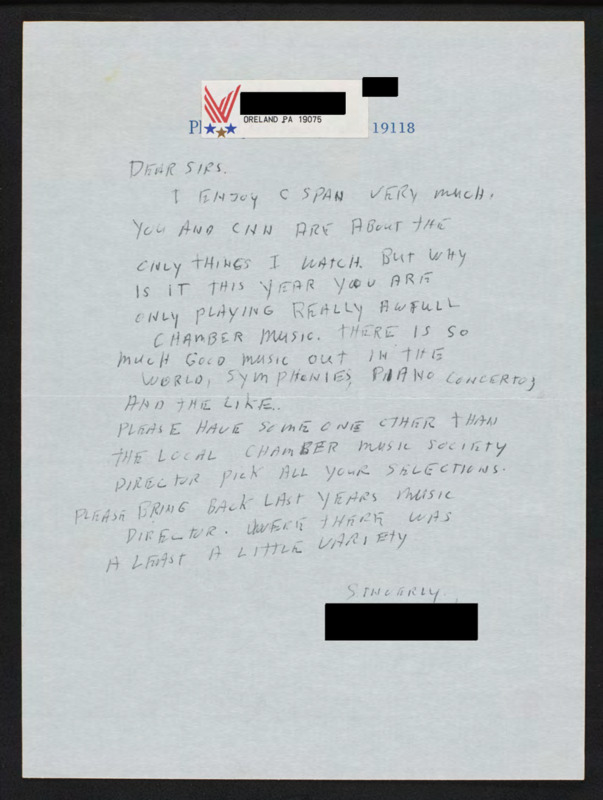 ORELAND PA 19075
Pl 19118
DEAR SIRS.
I ENJOY C SPAN VERY MUCH.
YOU AND CNN ARE ABOUT THE
ONLY THINGS I WATCH. BUT WHY
IS IT THIS YEAR YOU ARE
ONLY PLAYING REALLY AWFULL
CHAMBER MUSIC. THERE IS SO
MUCH GOOD MUSIC OUT IN THE
WORLD, SYMPHONIES, PIANO CONCERTOS
AND THE LIKE.
PLEASE HAVE SOME ONE OTHER THAN
THE LOCAL CHAMBER MUSIC SOCIETY
DIRECTOR PICK ALL YOUR SELECTIONS.
PLEASE BRING BACK LAST YEARS MUSIC
DIRECTOR. WERE THERE WAS
A LEAST A LITTLE VARIETY
SINCERLY,